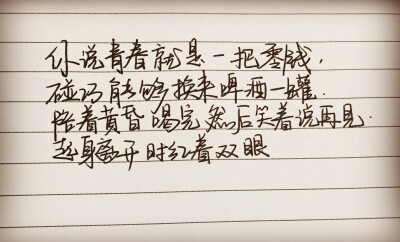 你说青春就是一把零钱，
碰巧能够换来啤酒一罐.
陪着黄昏喝完然后笑着说再见.
起身离开时红着双眼